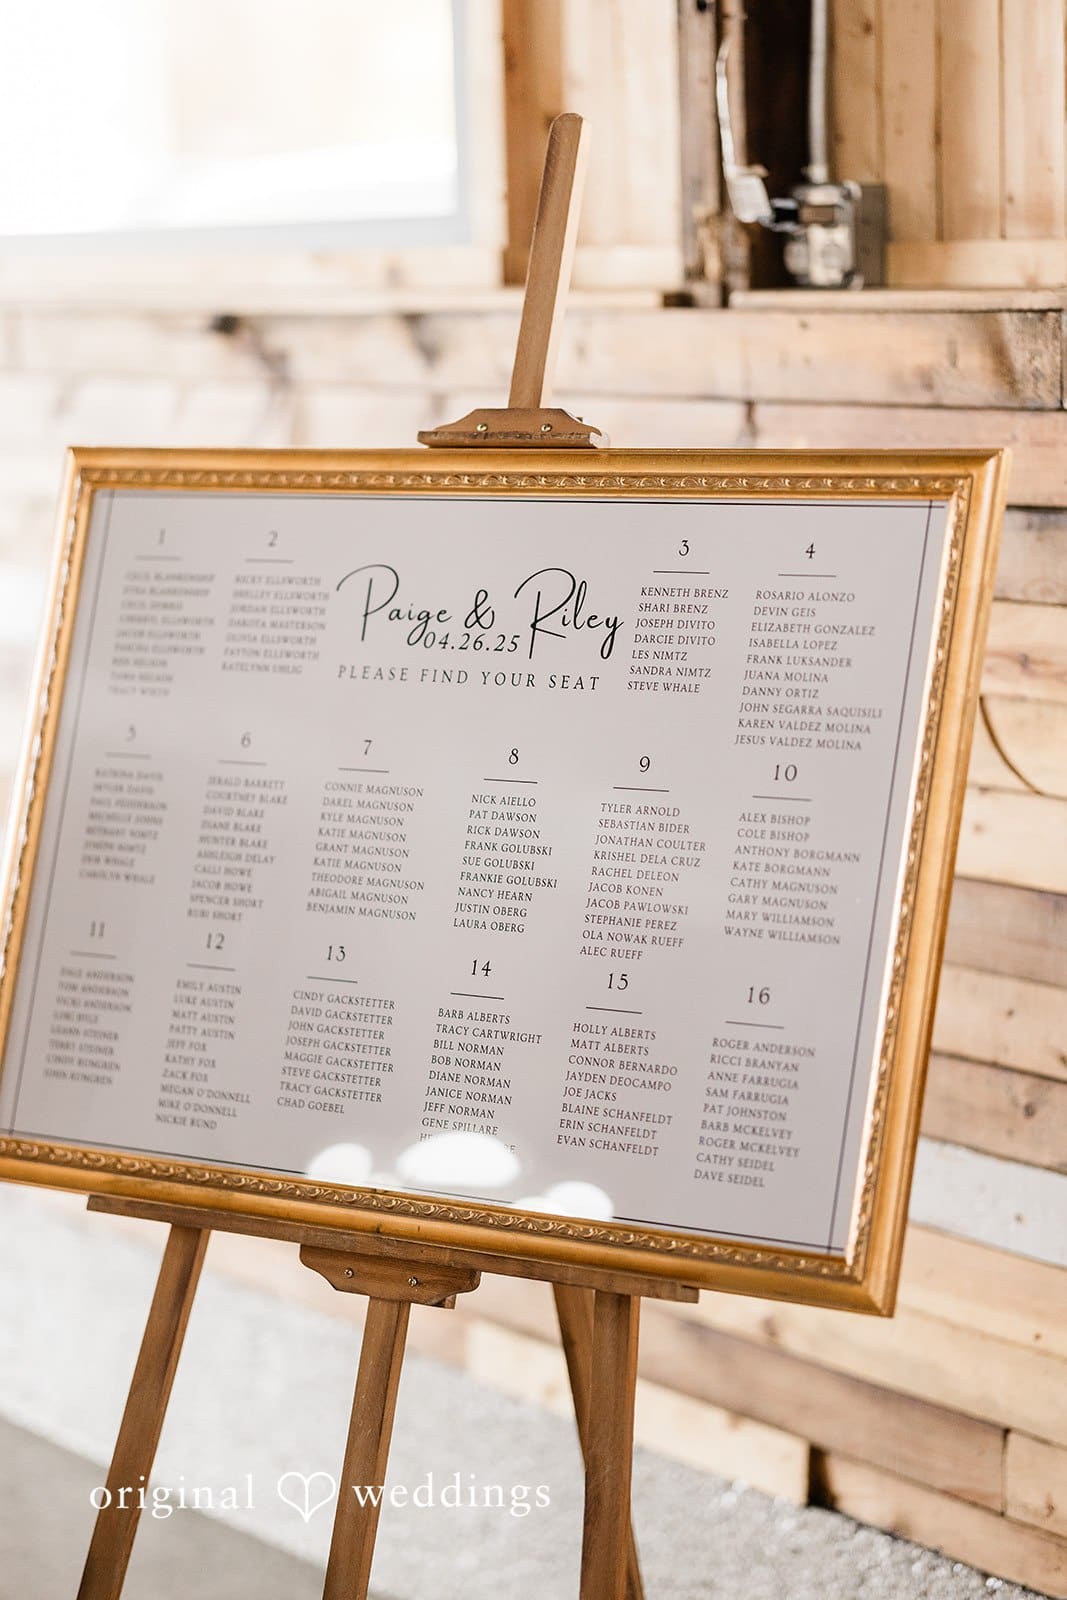 1
CECIL BLANKENSHIP
ETHA BLANKENSHIP
CHERRYL ELLSWORTH
JACOB ELLSWORTH
SANDRA ELLSWORTH
BEN NELSON
TARA NELSON
TRACY WIRTH
2
RICKY ELLSWORTH
SHELLEY ELLSWORTH
JORDAN ELLSWORTH
DAKOTA MASTERSON
OLIVIA ELLSWORTH
PAYTON ELLSWORTH
KATELYNN UHLIG
Paige & Riley
04.26.25
PLEASE FIND YOUR SEAT
3
KENNETH BRENZ
SHARI BRENZ
JOSEPH DIVITO
DARCIE DIVITO
LES NIMTZ
SANDRA NIMTZ
STEVE WHALE
4
ROSARIO ALONZO
DEVIN GEIS
ELIZABETH GONZALEZ
ISABELLA LOPEZ
FRANK LUKSANDER
JUANA MOLINA
DANNY ORTIZ
JOHN SEGARRA SAQUISILI
KAREN VALDEZ MOLINA
JESUS VALDEZ MOLINA
5
KATRINA DAVIS
SKYLER DAVIS
PAUL FEDDERSON
MICHELLE JOHNS
BETHANY NIMTZ
JOSEPH NIMTZ
DEB WHALE
CAROLYN WHALE
6
JERALD BARRETT
COURTNEY BLAKE
DAVID BLAKE
DIANE BLAKE
HUNTER BLAKE
ASHLEIGH DELAY
CALLI HOWE
JACOB HOWE
SPENCER SHORT
RUBI SHORT
7
CONNIE MAGNUSON
DAREL MAGNUSON
KYLE MAGNUSON
KATIE MAGNUSON
GRANT MAGNUSON
KATIE MAGNUSON
THEODORE MAGNUSON
ABIGAIL MAGNUSON
BENJAMIN MAGNUSON
8
NICK AIELLO
PAT DAWSON
RICK DAWSON
FRANK GOLUBSKI
SUE GOLUBSKI
FRANKIE GOLUBSKI
NANCY HEARN
JUSTIN OBERG
LAURA OBERG
9
TYLER ARNOLD
SEBASTIAN BIDER
JONATHAN COULTER
KRISHEL DELA CRUZ
RACHEL DELEON
JACOB KONEN
JACOB PAWLOWSKI
STEPHANIE PEREZ
OLA NOWAK RUEFF
ALEC RUEFF
10
ALEX BISHOP
COLE BISHOP
ANTHONY BORGMANN
KATE BORGMANN
CATHY MAGNUSON
GARY MAGNUSON
MARY WILLIAMSON
WAYNE WILLIAMSON
11
DALE ANDERSON
TOM ANDERSON
VICKI ANDERSON
LORI HYLE
LEANN STEINER
TERRY STEINER
CINDY RUNGREN
JOHN RUNGREN
12
EMILY AUSTIN
LUKE AUSTIN
MATT AUSTIN
PATTY AUSTIN
JEFF FOX
KATHY FOX
ZACK FOX
MEGAN O'DONNELL
MIKE O'DONNELL
NICKIE KUND
13
CINDY GACKSTETTER
DAVID GACKSTETTER
JOHN GACKSTETTER
JOSEPH GACKSTETTER
MAGGIE GACKSTETTER
STEVE GACKSTETTER
TRACY GACKSTETTER
CHAD GOEBEL
14
BARB ALBERTS
TRACY CARTWRIGHT
BILL NORMAN
BOB NORMAN
DIANE NORMAN
JANICE NORMAN
JEFF NORMAN
GENE SPILLARE
15
HOLLY ALBERTS
MATT ALBERTS
CONNOR BERNARDO
JAYDEN DEOCAMPO
JOE JACKS
BLAINE SCHANFELDT
ERIN SCHANFELDT
EVAN SCHANFELDT
16
ROGER ANDERSON
RICCI BRANYAN
ANNE FARRUGIA
SAM FARRUGIA
PAT JOHNSTON
BARB MCKELVEY
ROGER MCKELVEY
CATHY SEIDEL
DAVE SEIDEL
original weddings